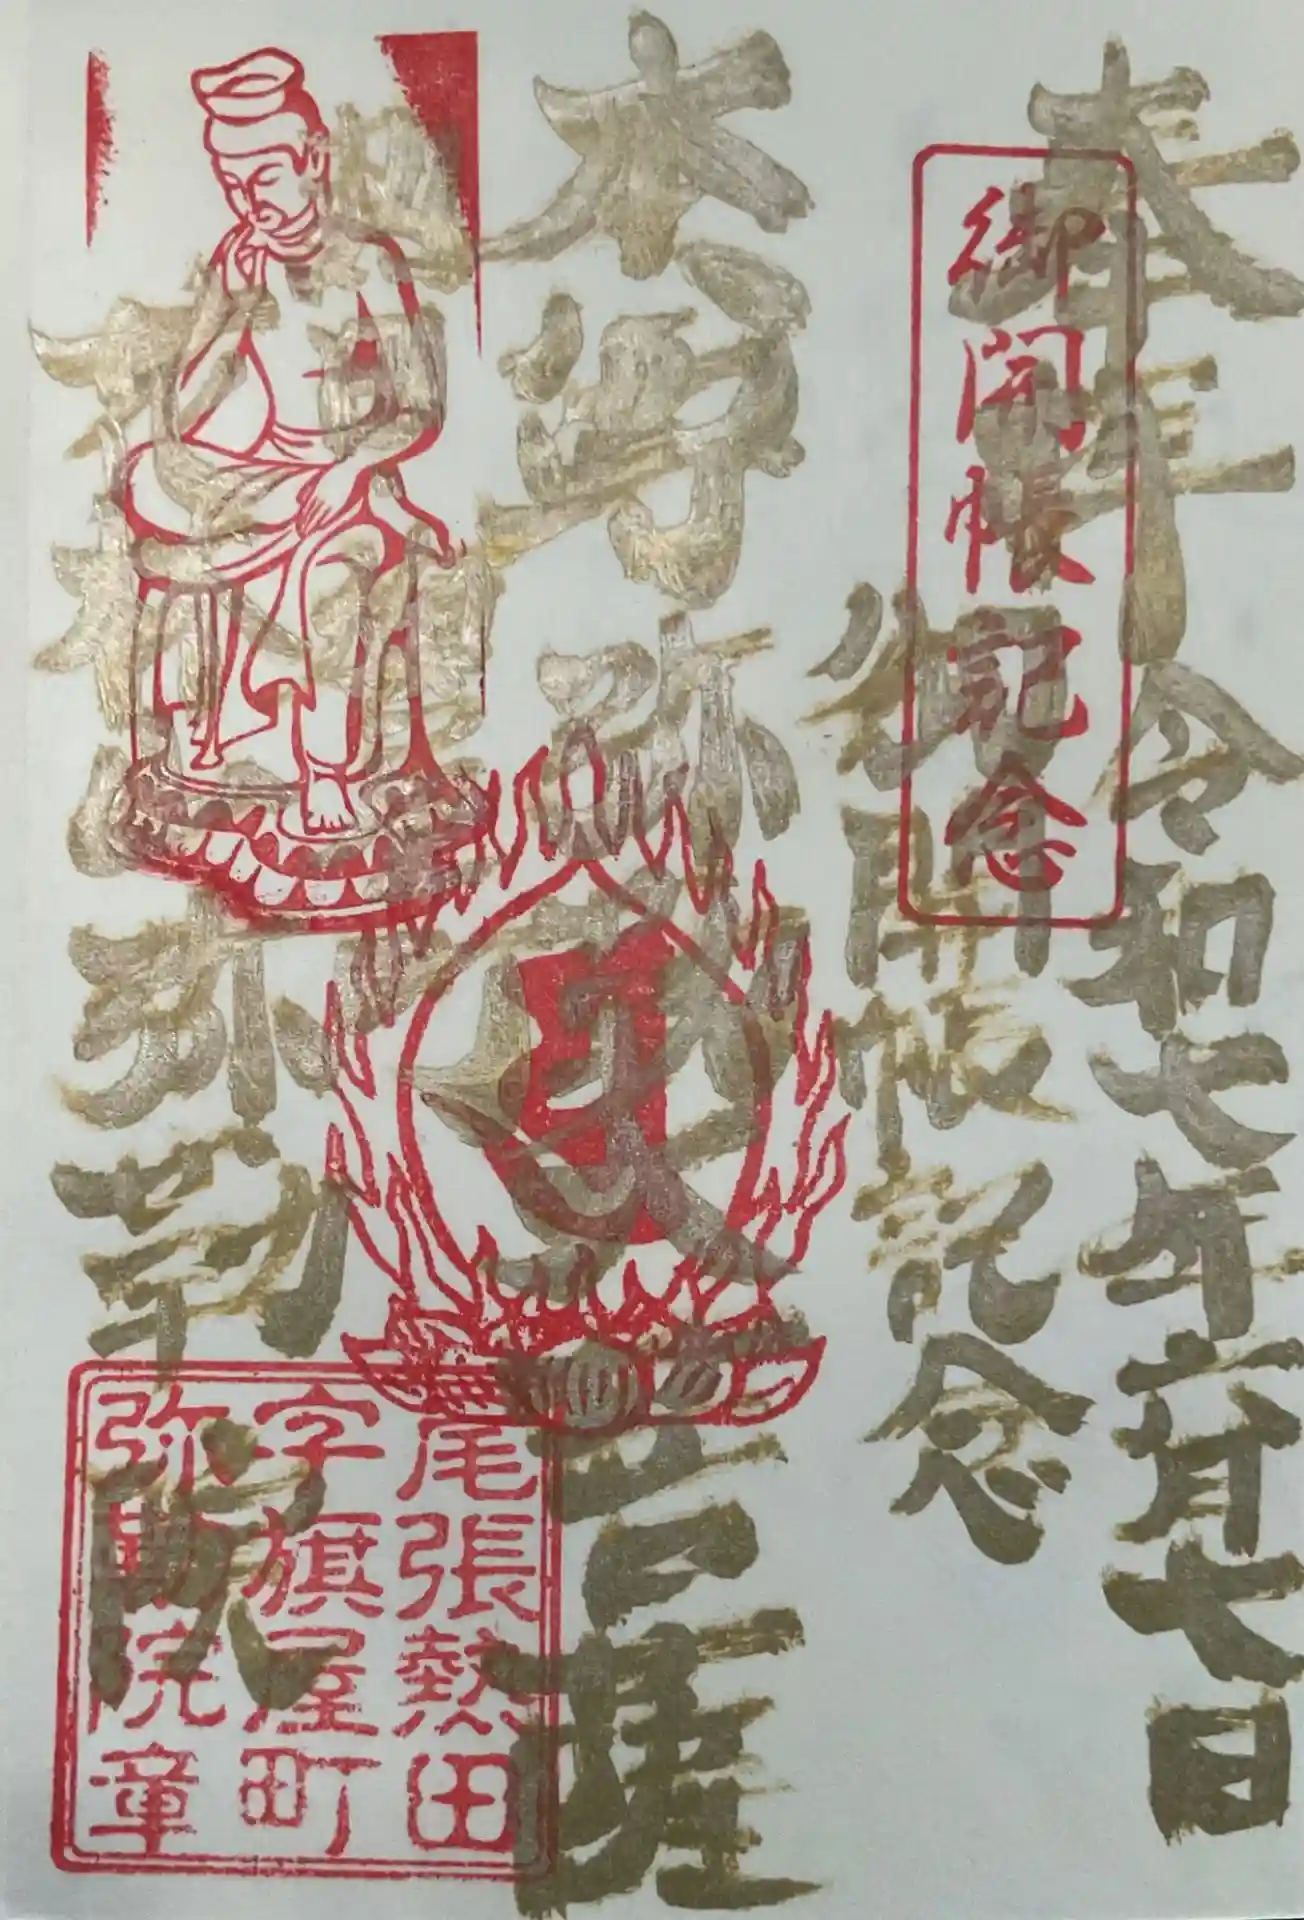 奉拝 令和七年 月七日
御開帳記念
御開帳記念
本尊 弥勒菩薩
弥勒院
尾張熱田
字旗屋町
弥勒院章